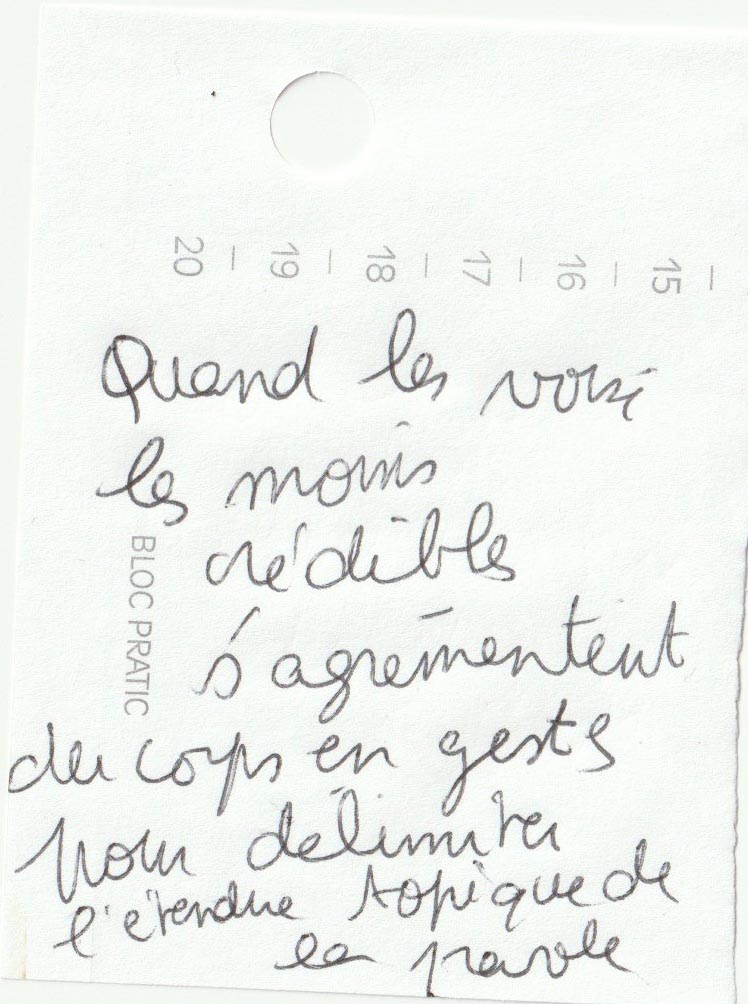 20 – 19 – 18 – 17 – 16 – 15 –
Quand les voix
les moins
crédibles
s'agrémentent
du corps en gestes
pour délimiter
l'étendue topique de
la parole
BLOC PRATIC